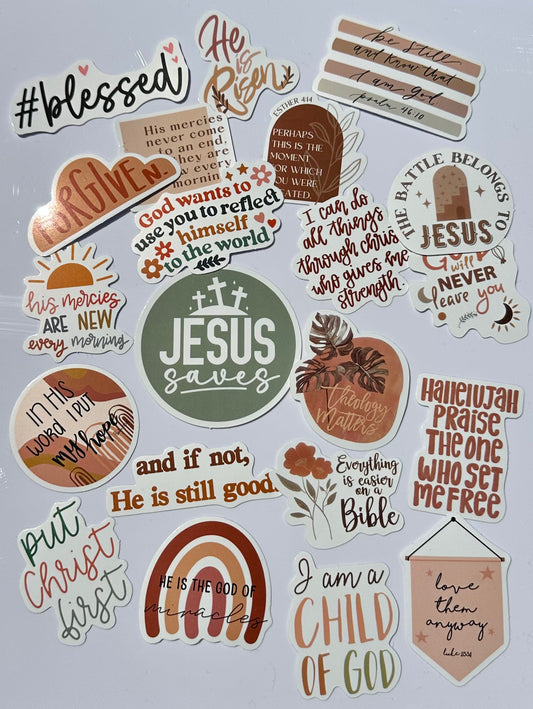 #blessed
He
is
Risen
be still
and know that
I am God
psalm 46:10
His mercies
never come
to an end,
they are
new every
morning
ESTHER 4:14
PERHAPS
THIS IS THE
MOMENT
FOR WHICH
YOU WERE
CREATED.
THE BATTLE BELONGS TO
JESUS
FORGIVEN.
God wants to
use you to reflect
himself
to the world
I can do
all things
through christ
who gives me
strength
GOD
will
NEVER
leave you
his mercies
ARE NEW
every morning
JESUS
saves
Theology
Matters
IN HIS
WORD I PUT
my hope
HALLELUJAH
PRAISE
THE ONE
WHO SET
ME FREE
and if not,
He is still good.
Everything
is easier
on a
Bible
put
Christ
first
HE IS THE GOD OF
miracles
I am a
CHILD
OF GOD
love
them
anyway